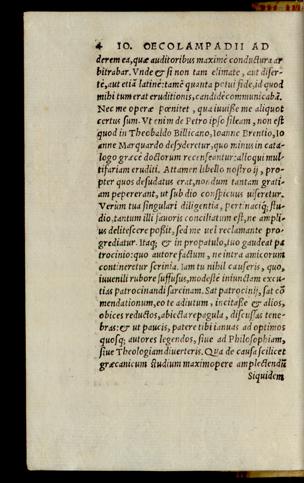 4 IO. OECOLAMPADII AD
derem ea, quæ auditoribus maximè conductura ar
bitrabar. Vnde & si non tam elimate, aut diser-
tè, aut etiã latinè: tamẽ quanta potui fide, id quod
mihi tum erat eruditionis, candidè communicabã.
Nec me operæ pœnitet, qua iuuisse me aliquot
certus sum. Vt enim de Petro ipso sileam, non est
quod in Theobaldo Billicano, Ioanne Brentio, Io
anne Marquardo desyderetur, quo minus in cata-
logo græcè doctorum recenseantur: alioqui mul-
tifariam eruditi. Attamen libello nostro ij, pro-
pter quos desudatus erat, nondum tantam grati-
am pepererant, ut sub dio conspicuus uiseretur.
Verùm tua singulari diligentia, pertinaciq; stu-
dio tantum illi fauoris conciliatum est, ne ampli-
us delitescere possit, sed me uel reclamante pro-
grediatur. Itaq; & in propatulo, tuo gaudeat pa
trocinio: quo autore factum, ne intra amicorum
contineretur scrinia. Iam tu nihil causeris, quo,
iuuenili rubore suffusus, modestè iniunctam excu-
tias patrocinandi sarcinam. Sat patrocinij, sat cõ
mendationum, eo te adiutum, incitasse & alios,
obices reductos, abiecta repagula, discussas tene-
bras: & ut paucis, patere tibi ianuas ad optimos
quosq; autores legendos, siue ad Philosophiam,
siue Theologiam diuerteris. Qua de causa scilicet
græcanicum studium maximopere amplectendũ
Siquidem